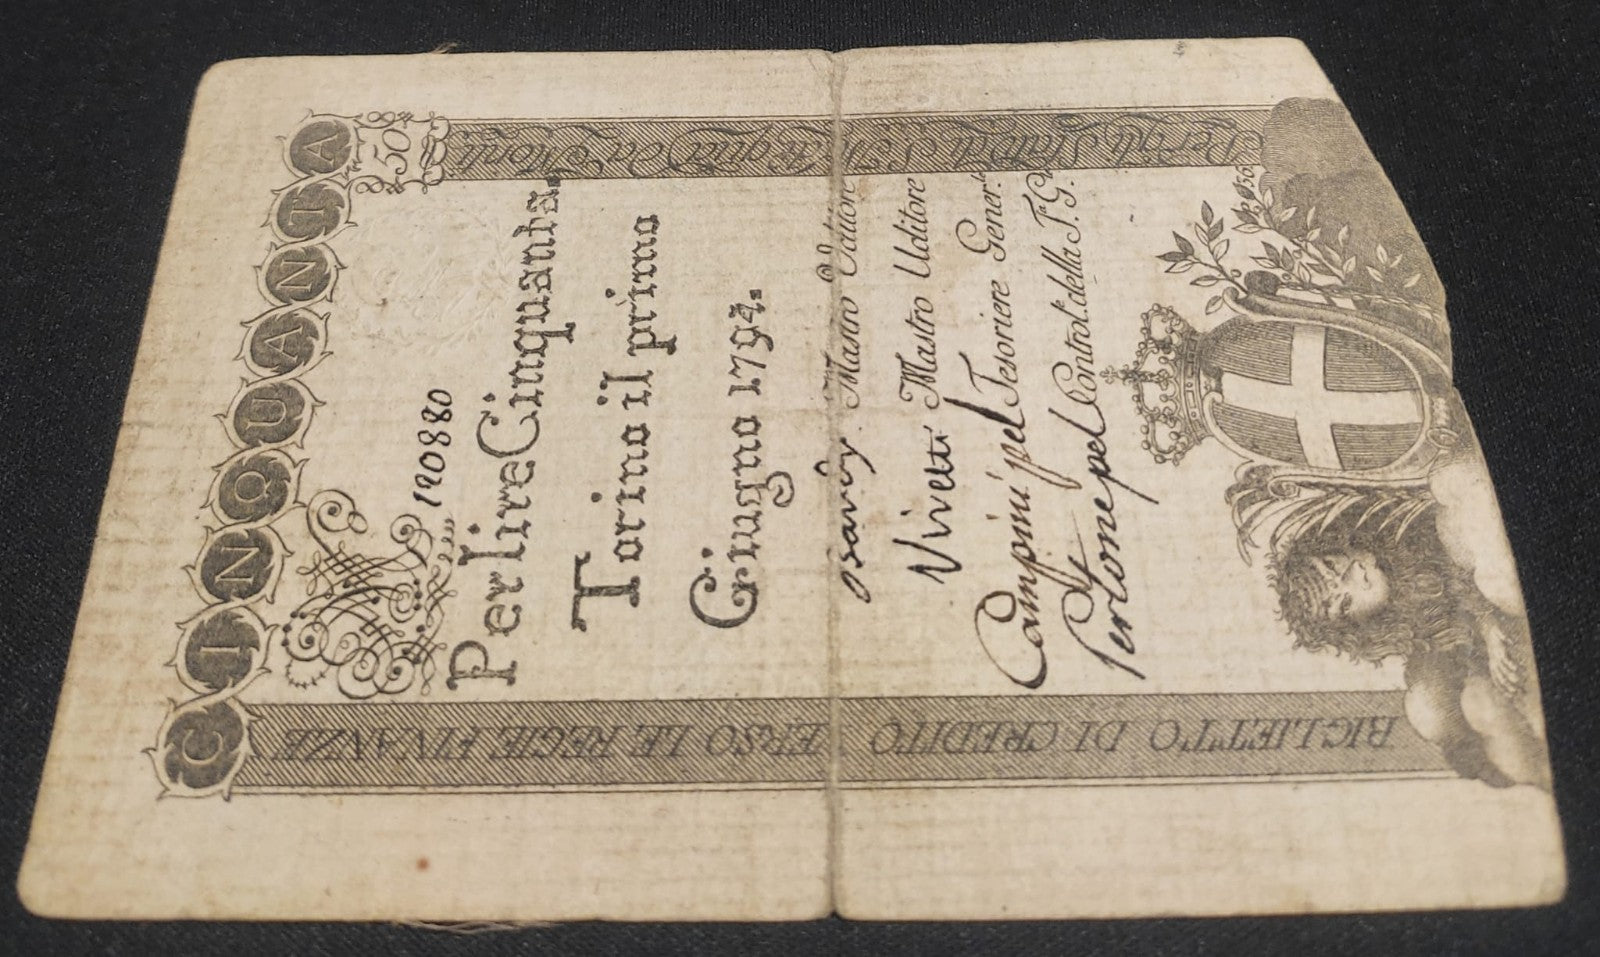 CINQUANTA
50
190880
Per lire Cinquanta.
Torino il primo
Giugno 1794.
Mastro Uditore
Vivetti Mastro Uditore
Campini pel Tesoriere Gener.le
pel Control.e della T. G.le
50
BIGLIETTO DI CREDITO VERSO LE REGIE FINANZE